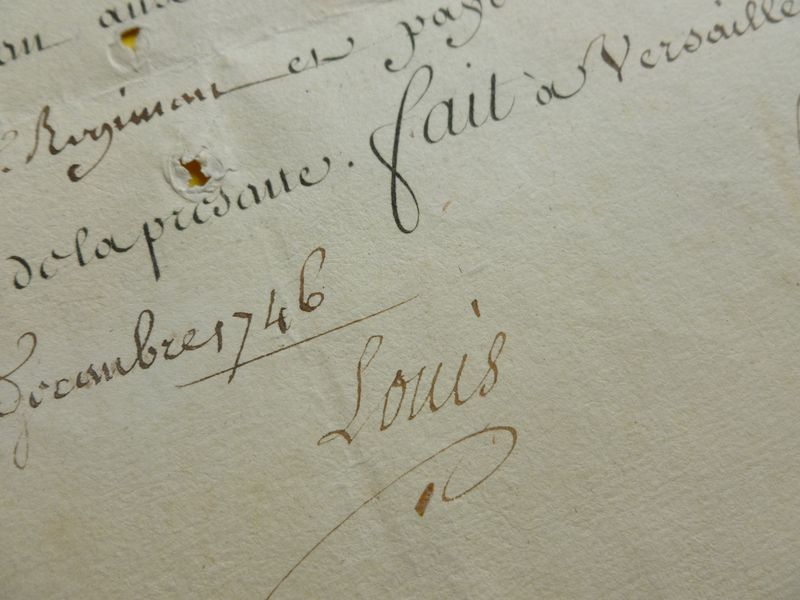 Regiment et paye
de la presente. fait à Versaille
Decembre 1746
Louis